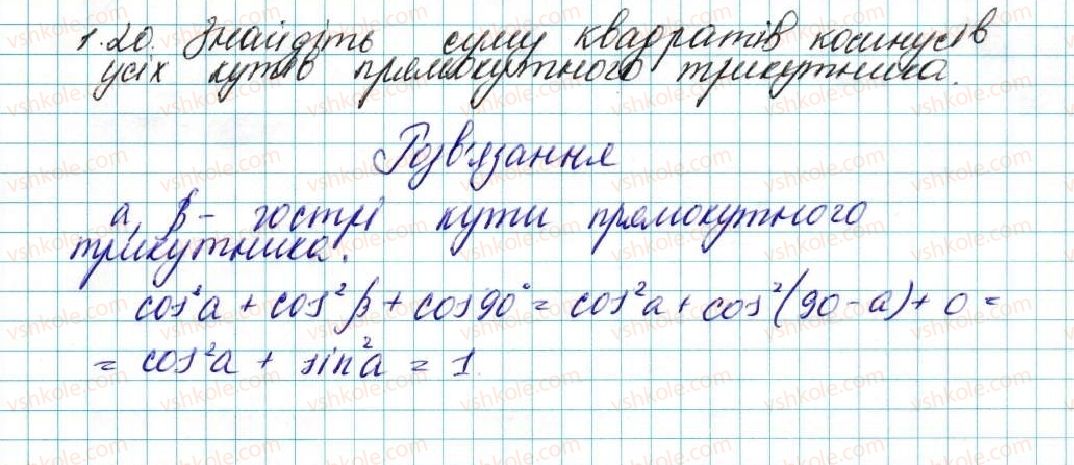 1.20. Знайдіть суму квадратів косинусів
усіх кутів прямокутного трикутника.
Розв'язання
a, β - гострі кути прямокутного
трикутника.
cos²a + cos²β + cos90° = cos²a + cos²(90-a) + 0 =
= cos²a + sin²a = 1.